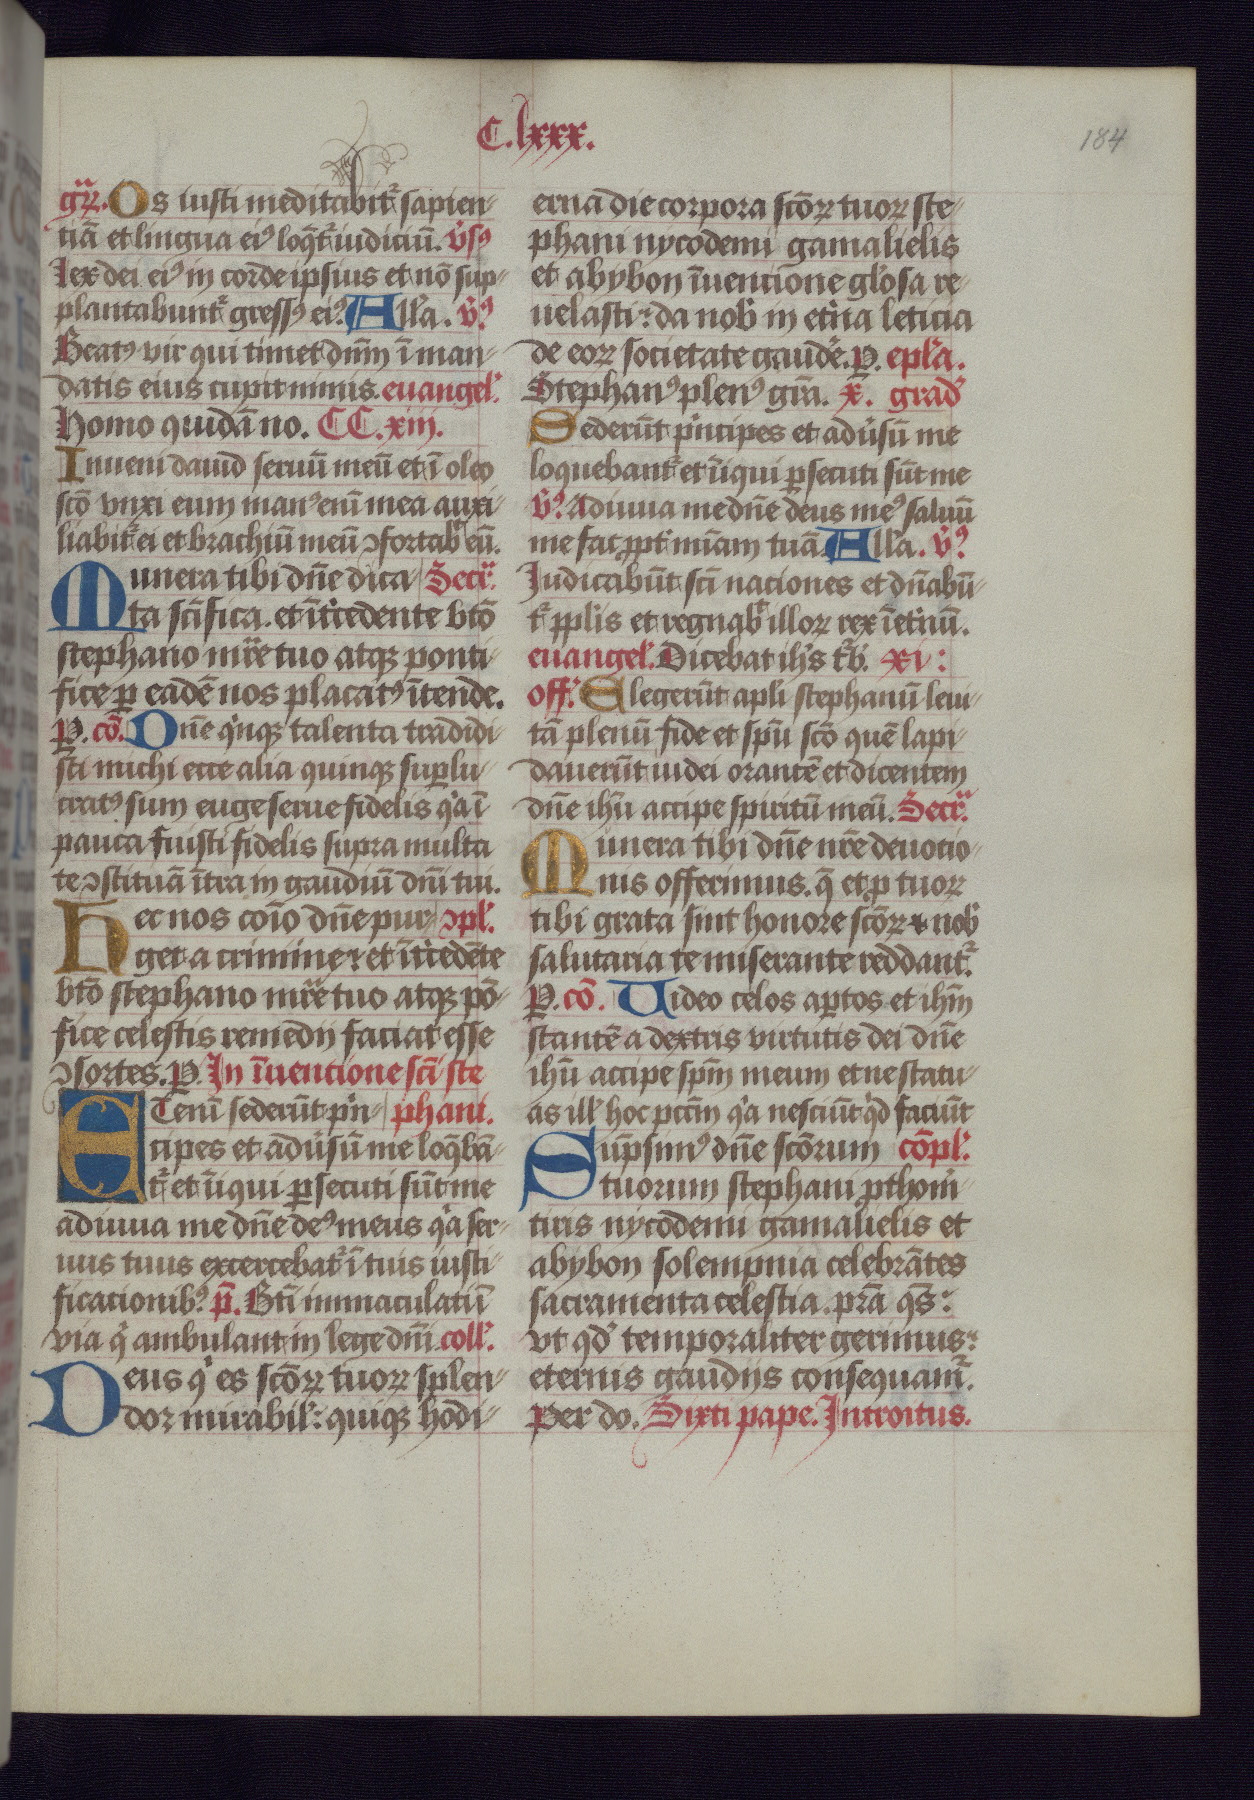 C.lxxx.
184
gr̄. Os iusti meditabit᷑ sapien-
tiā et lingua eiꝰ loq̄t᷑ iudiciū. v̄sꝰ
Lex dei eiꝰ in corde ipsius et nō sup-
plantabunt᷑ gressꝰ eiꝰ. Alla. v̄ꝰ
Beatꝰ vir qui timet dn̄m ī man-
datis eius cupit nimis. euangel᷑.
Homo quidā no. CC.xiii.
Inueni dauid seruū meū et ī oleo
scō vnxi eum manꝰ enī mea auxi-
liabit᷑ ei et brachiū meū ꝯfortab᷑ eū.
Munera tibi dn̄e dica- Secr᷑.
ta sc̄ifica. et īt̄cedente btō
stephano mr̄e tuo atqꝫ ponti-
fice ꝑ eadē nos placatꝰ ītende.
P. cō. Dn̄e qͥnqꝫ talenta tradidi-
sti michi ecce alia quinqꝫ suꝑlu-
cratꝰ sum euge serue fidelis qͥa ī
pauca fuisti fidelis supra multa
te ꝯstituā ītra in gaudiū dn̄i tui.
Hec nos cōio dn̄e pur- ꝯpl᷑.
get a crimine: et īt̄cedēte
btō stephano mr̄e tuo atqꝫ pō-
fice celestis remedii faciat esse
ꝯsortes. P. In īuentione sc̄i ste
Etenī sederūt pͥn- phani.
cipes et adūsū me loq̄bā-
t᷑ et īiqui ꝑsecuti sūt me
adiuua me dn̄e deꝰ meus qͥa ser-
uus tuus excercebat᷑ ī tuis iusti-
ficationibꝰ. p̄. Bt̄i immaculati ī
via qͥ ambulant in lege dn̄i. coll᷑.
Deus qͥ es scōꝝ tuoꝝ splen-
dor mirabil᷑: quiqꝫ hodi-
erna die corpora scōꝝ tuoꝝ ste-
phani nycodemi gamalielis
et abybon īuentione gl̄osa re-
uelasti: da nob᷑ in et̄na leticia
de eoꝝ societate gaudē. P. epl̄a.
Stephanꝰ plenꝰ gr̄a. x. grad᷑
Sederūt pͥncipes et adūsū me
loquebant᷑ et īiqui ꝑsecuti sūt me
v̄ꝰ. Adiuua me dn̄e deus meꝰ saluū
me fac ꝓpt᷑ mīam tuā. Alla. v̄ꝰ.
Iudicabūt sc̄i naciones et dn̄abū-
t᷑ ppl̄is et regnab᷑ illoꝝ rex īet̄nū.
euangel᷑. Dicebat ih̄s t᷑b. xi:
off᷑. Elegerūt apl̄i stephanū leui-
tā plenū fide et spū scō quē lapi-
dauerūt iudei orantē et dicentem
dn̄e ih̄u accipe spiritū meū. Secr᷑.
Munera tibi dn̄e nr̄e deuotio-
nis offerimus. q̄ et ꝓ tuoꝝ
tibi grata sint honore scōꝝ & nob᷑
salutaria te miserante reddant᷑.
P. cō. Video celos aꝑtos et ih̄m
stantē a dextris virtutis dei dn̄e
ih̄u accipe spm̄ meum et ne statu-
as ill᷑ hoc pctm̄ qͥa nesciūt qͩ faciūt
Sūpsimꝰ dn̄e scōrum cōpl᷑.
tuorum stephani ꝓthom̄-
tiris nycodemi gamalielis et
abybon solempnia celebrātes
sacramenta celestia. pr̄a qs̄:
vt qd᷑ temporaliter gerimus:
eternis gaudiis consequam᷑.
Per do. Sixti pape. Introitus.